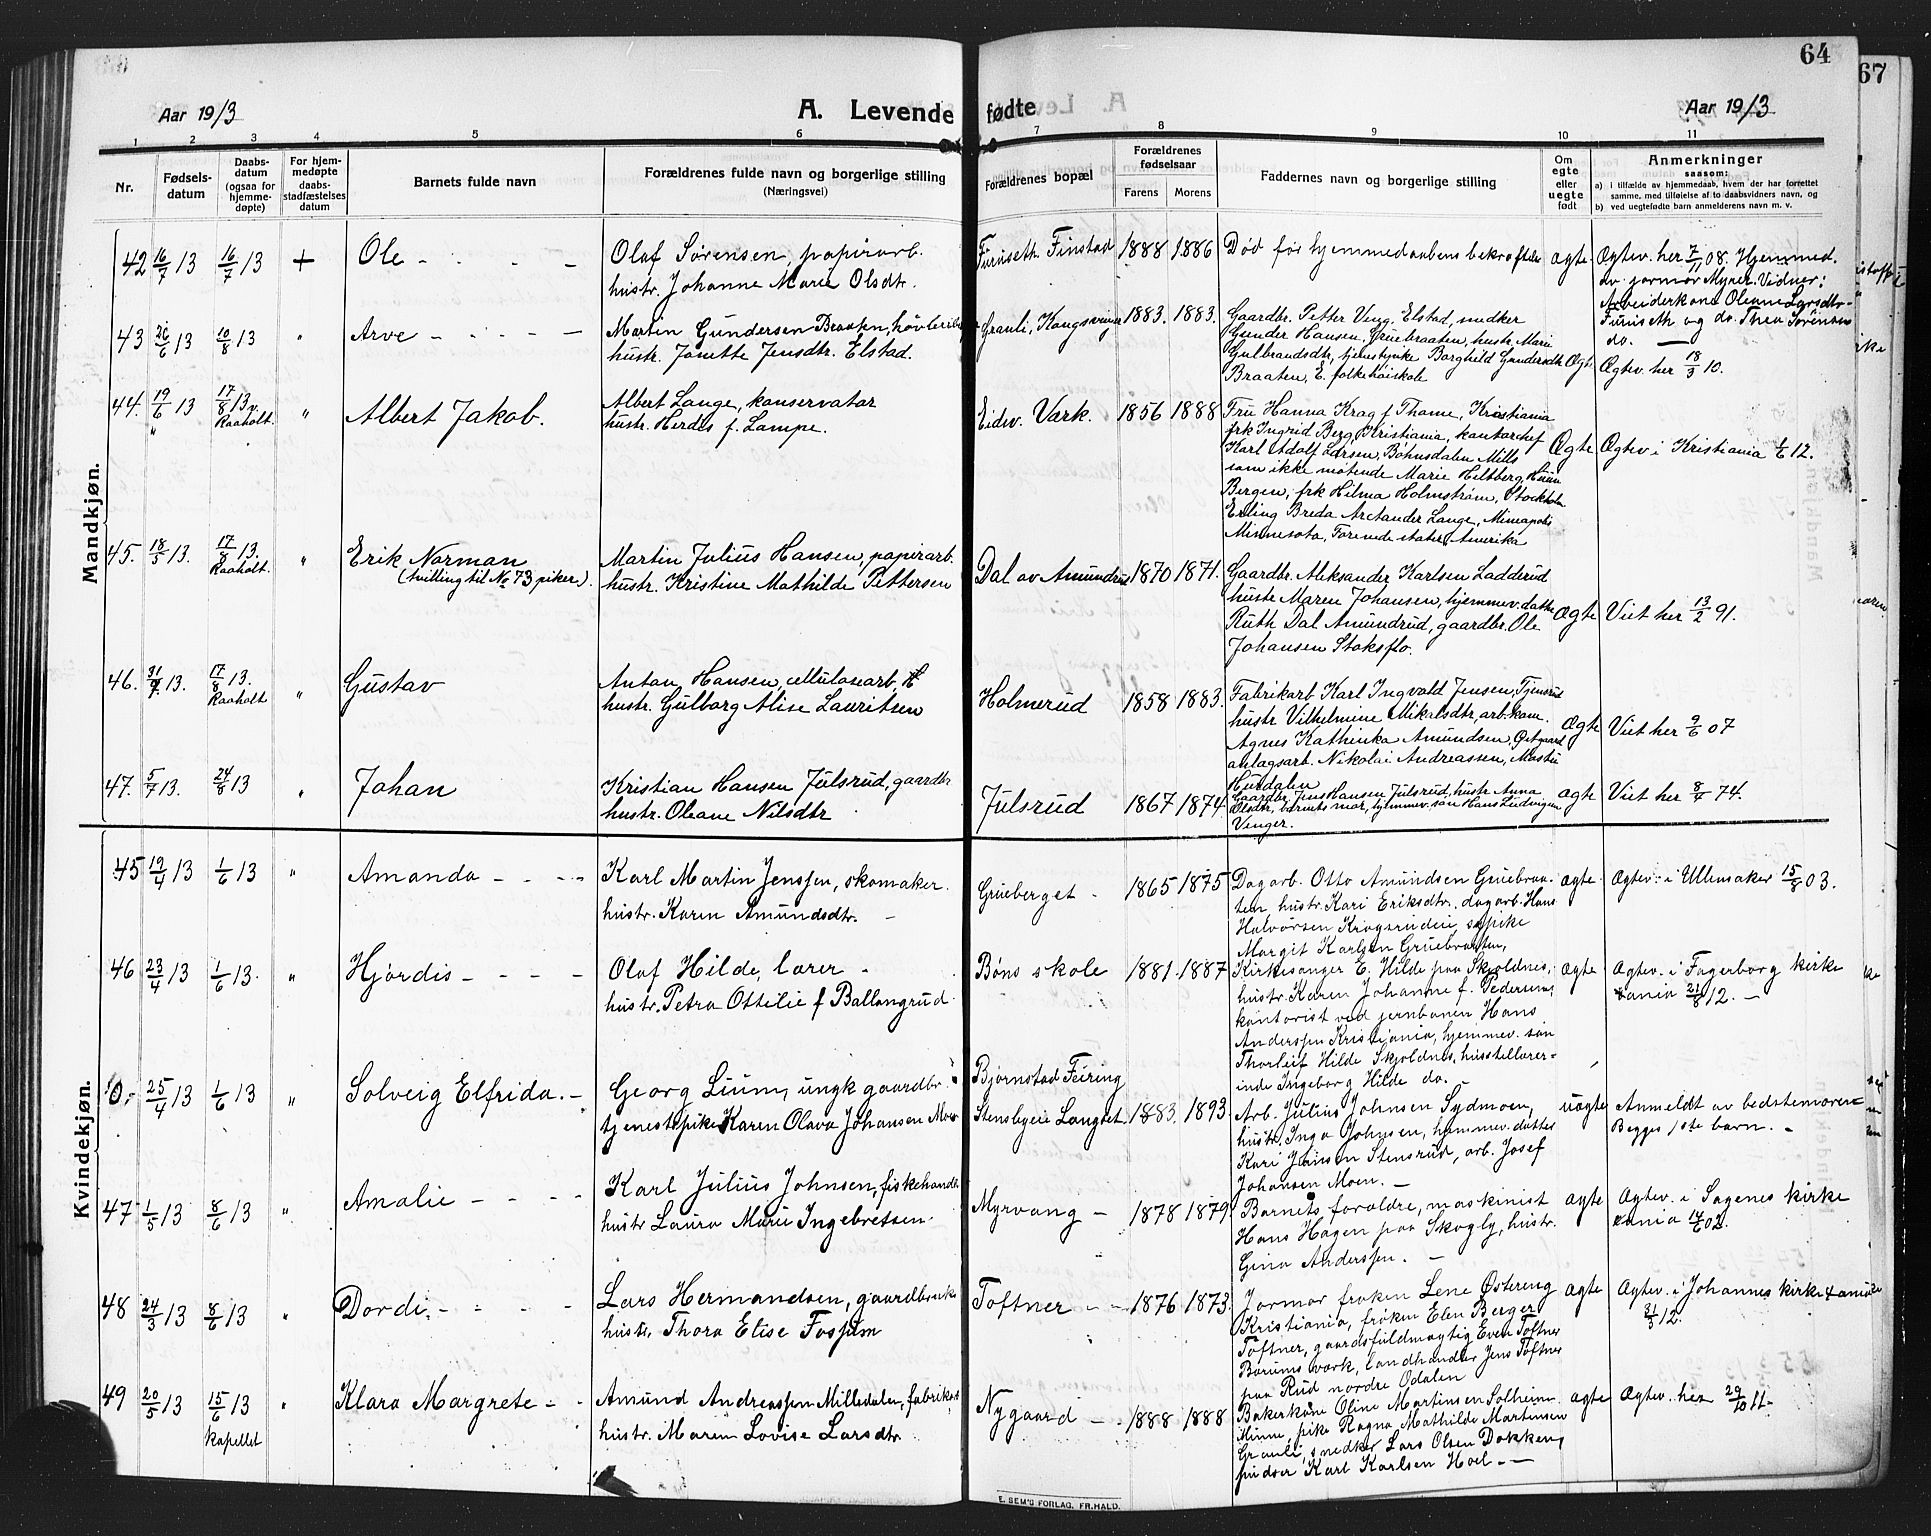 64
67
Aar 1913
A. Levende fødte
Aar 1913
1 2 3 4 5 6 7 8 9 10 11
Nr.
Fødsels-
datum
Daabs-
datum
(ogsaa for
hjemme-
døpte)
For hjem-
medøpte
daabs-
stadfæstelses
datum
Barnets fulde navn
Forældrenes fulde navn og borgerlige stilling
(Næringsvei)
Forældrenes bopæl
Forældrenes
fødselsaar
Farens Morens
Faddernes navn og borgerlige stilling
Om
egte
eller
uegte
født
Anmerkninger
saasom:
a) i tilfælde av hjemmedaab, hvem der har forrettet
samme, med tilføielse af to daabsvidners navn, og
b) ved uegtefødte barn anmelderens navn m. v.
Mandkjøn.
42 16/7 13 16/7 13 + Ole
Olaf Sørensen, papirarb.
hustr. Johanne Marie Olsdtr.
Furuseth Finstad 1888 1886
Død før hjemmedaabens bekræftelse
ægte.
Ægtev. her 7/11 08. Hjemmed.
av jormor Myrer. Vidner:
Arbeiderkone Oleane Larsdtr
Furuseth og do. Thea Sørensen
do.
43 26/6 13 10/8 13 " Arve
Martin Gundersen Braaten, høvleriarb
hustr. Jonette Jensdtr. Elstad.
Granli, Kongsvinger 1883. 1883.
Gaardbr. Petter Veng, Elstad, snedker
Gunder Hansen, Gruebraaten, hustr. Mari
Gulbrandsdtr, tjenestpike Borghild Gundersdtr
Braaten, E. folkehøiskole
Ægte
Ægtev. her 18/3 10.
44. 19/6 13 17/8 13 v. Raaholt. " Albert Jakob.
Albert Lange, konservator
hustr. Herdis f. Lampe.
Eidsv. Værk. 1856 1888
Fru Hanna Krag f. Thome, Kristiania
frk Ingrid Berg, Kristiania, kontorchef
Karl Adolf Larsen, Bøhnsdalen Mills
som ikke møtende Marie Heltberg,
Bergen, frk Hilma Holmstrøm, Stockholm
Erling Breda Arctander Lange, Mineapolis
Minnesota, Forenede stater Amerika
Ægte
Ægtev i Kristiania 1/6 12.
45. 18/5 13. 17/8 13. Raaholt. " Erik Norman
(tvilling til No 73 piker).
Martin Julius Hansen, papirarb.
hustr. Kristine Mathilde Pettersen
Dal av Amundrud 1870 1871.
Gaardbr. Aleksander Karlsen Ladderud
hustr Maren Johansen, hjemmev. datter
Ruth Dal Amundrud, gaardbr. Ole
Johansen Stoksflo.
Ægte
Viet her 13/2 91.
46. 31/7 13. 17/8 13. Raaholt " Gustav
Anton Hansen, cellulosearb.
hustr. Gulborg Alise Lauritsen
Holmerud 1858 1883.
Fabrikarb Karl Ingvald Jensen,
hustr Vilhelmine Mikalsdtr, arb.kone
Agnes Kathinka Amundsen, Østgaard
anlagsarb. Nikolai Andreassen,
Hurdalen
Ægte
Viet her 9/6 07
47. 5/7 13. 24/8 13 " Johan
Kristian Hansen Julsrud, gaardbr
hustr. Oleane Nilsdtr
Julsrud 1867 1874.
Gaardbr. Jens Hansen Julsrud, hustr Anna
Olsdtr, barnets mor, hjemmev. søn Hans Ludvigsen
Venger.
ægte
Viet her 8/4 74.
Kvindekjøn.
45 19/4 13 1/6 13 " Amanda
Karl Martin Jenssen, skomaker.
hustr. Karen Amundsdtr.
Grueberget 1865 1875
Dagarb. Otto Amundsen Gruebraa-
ten hustr. Kari Eriksdtr. dagarb. Hans
Halvorsen Krogsrudeie, pike
Margit Karlsen Gruebraaten,
ægte
Ægtev. i Ullensaker 15/8 03.
46 23/4 13 1/6 13. " Hjørdis
Olaf Hilde, lærer
hustr. Petra Ottilie f Ballangrud
Bøns skole 1881. 1887
Kirkesanger E. Hilde paa Skjoldnes,
hustr. Karen Johanne f. Pedersen,
kontorist ved jernbanen Hans
Anderssen Kristiania, hjemmev. søn
Thorleif Hilde Skjoldnes, husstellærer-
inde Ingeborg Hilde do.
ægte
Ægtev. i Fagerborg kirke
Xania 21/8 12.
25/4 13 1/6 13 " Solveig Elfrida.
Georg Lium, ungk gaardbr.
tjenestpike Karen Olava Johansen Moen
Bjørnstad Feiring
Stensbyeie Langset 1883. 1893
Arb. Julius Johnsen Sydmoen,
hustr. Inga Johnsen, hjemmev. datter
Kari Jensen Stensrud, arb. Josef
Johansen Moen.
uægte
Anmeldt av bedstemoren
Begges 1ste barn.
47 1/5 13 8/6 13 " Amalie
Karl Julius Johnsen, fiskehandl.
hustr Laura Marie Ingebretsen.
Myrvang 1878 1879
Barnets forældre, maskinist
Hans Hagen paa Skogly, hustr.
Gina Anderssen.
ægte
Ægtev. i Sagenes kirke
Xania 14/6 02.
48 24/3 13 8/6 13 " Dordi
Lars Hermandsen, gaardbruk
hustr. Thora Elise Fossum
Toftner 1876 1873.
Jormor frøken Lene Østereng
Kristiania, frøken Elen Berger
Toftner, gaardsfuldmægtig Even Toftner
Bærums værk, landhandler Jens Toftner
paa Rud nordre Odalen
ægte
Ægtev. i Johannes kirke Xania
31/3 12.
49 20/5 13 15/6 13 kapellet " Klara Margrete
Amund Andreassen Milledalen, fabrikarb
hustr. Maren Lovise Larsdtr.
Nygaard 1888 1888
Bakerkone Oline Martinsen Solheim
Minne, pike Ragna Mathilde Martinsen
Granli, snedker Lars Olsen Dokken,
pudser Karl Karlsen Hoel.
ægte
Ægtev. her 29/10 11.
E. SEM'S FORLAG, FR.HALD.